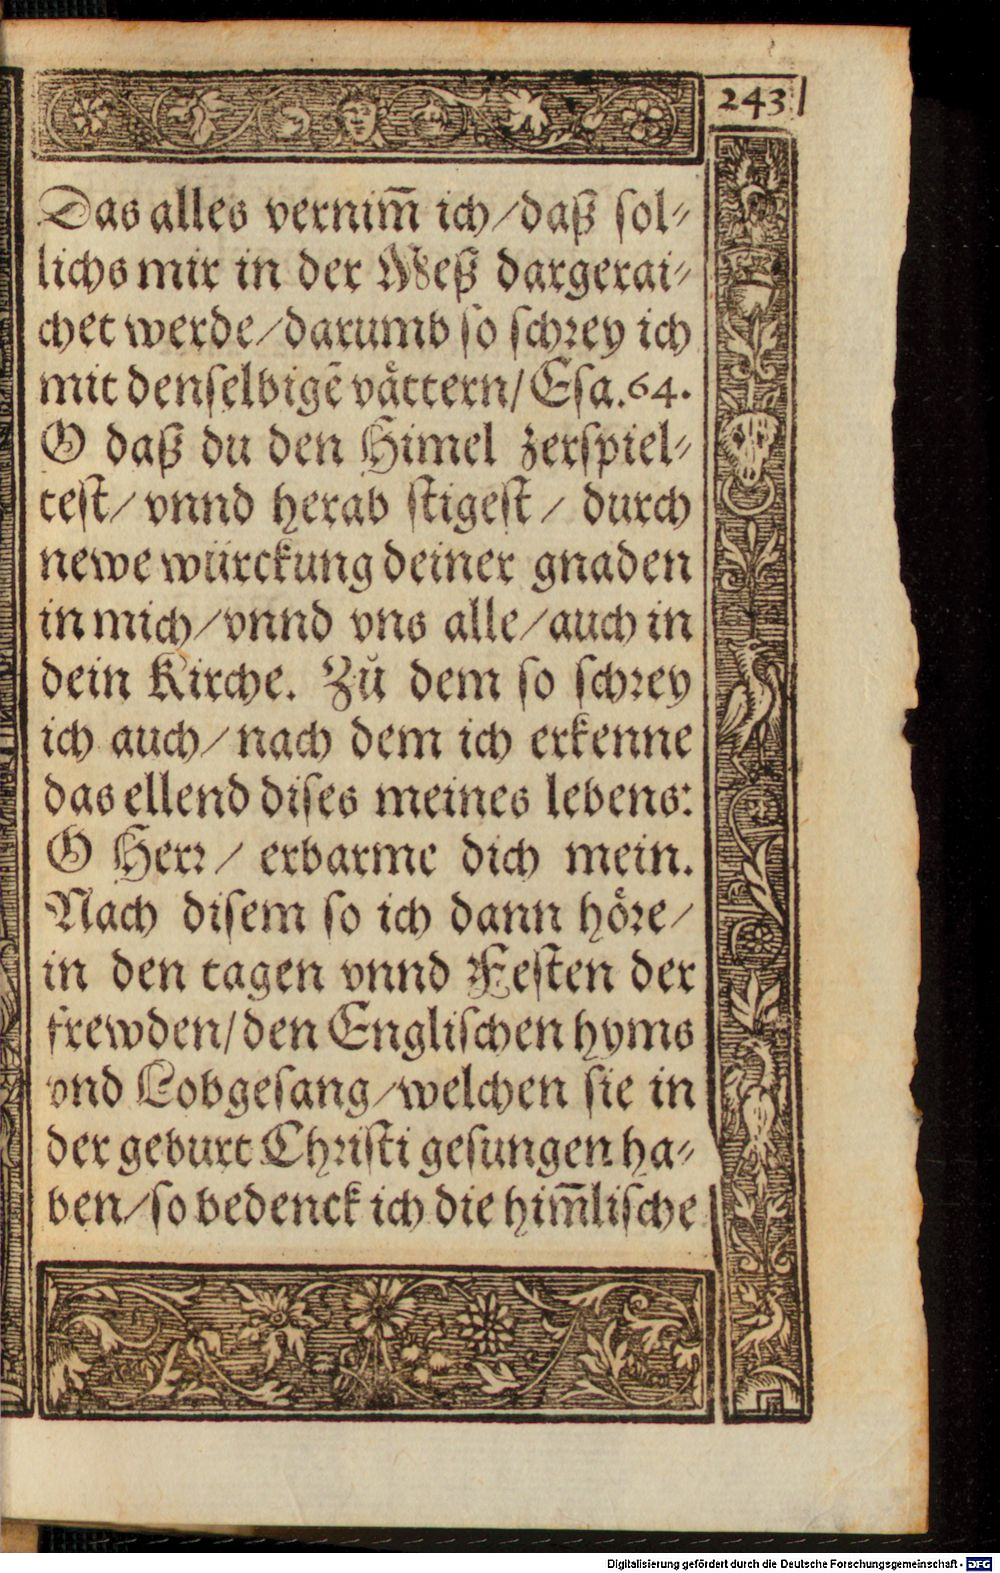 243
Das alles vernim̅ ich/daß sol-
lichs mir in der Meß dargerai-
chet werde/darumb so schrey ich
mit denselbigē våttern/Esa.64.
O daß du den Himel zerspiel-
test/vnnd herab stigest/durch
newe würckung deiner gnaden
in mich/vnnd vns alle/auch in
dein Kirche. Zů dem so schrey
ich auch/nach dem ich erkenne
das ellend dises meines lebens:
O Herr/erbarme dich mein.
Nach disem so ich dann höre/
in den tagen vnnd Festen der
frewden/den Englischen hyms
vnd Lobgesang/welchen sie in
der geburt Christi gesungen ha-
ben/so bedenck ich die him̅lische
Digitalisierung gefördert durch die Deutsche Forschungsgemeinschaft - DFG